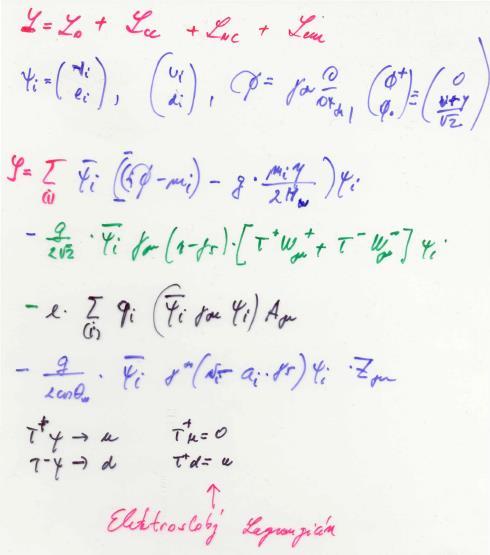 ℒ = ℒ₀ + ℒcc + ℒNC + ℒem
ψi = (νi ei), (ui di), ∂̸ = γμ ∂/∂xμ, (φ⁺ φ₀) ≡ (0 (v+η)/√2)
ℒ = Σ(i) ψ̄i [(i∂̸ − mi) − g · mi η / 2Mw] ψi
− g/2√2 · ψ̄i γμ (1−γ5) · [T⁺Wμ⁺ + T⁻Wμ⁻] ψi
− e · Σ(i) qi (ψ̄i γμ ψi) Aμ
− g/2cosθw · ψ̄i γᵐ (vi − ai · γ5) ψi · Zμ
T⁺ψ → u T⁺u = 0
T⁻ψ → d T⁺d = u
↑
Elektroslabý Lagrangián